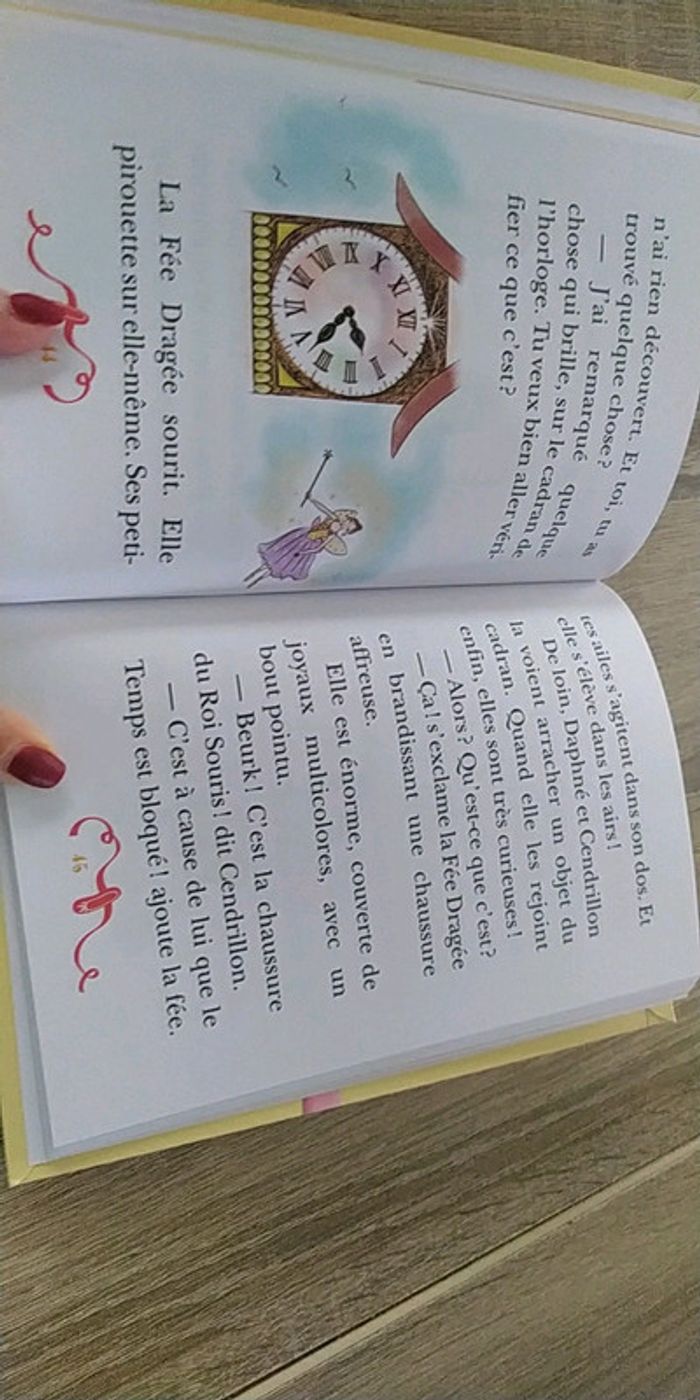 n'ai rien découvert. Et toi, tu as
trouvé quelque chose ?
— J'ai remarqué quelque
chose qui brille, sur le cadran de
l'horloge. Tu veux bien aller véri-
fier ce que c'est ?
XII
I
II
III
IIII
V
VI
VII
VIII
IX
X
XI
La Fée Dragée sourit. Elle
pirouette sur elle-même. Ses peti-
44
tes ailes s'agitent dans son dos. Et
elle s'élève dans les airs !
De loin, Daphné et Cendrillon
la voient arracher un objet du
cadran. Quand elle les rejoint
enfin, elles sont très curieuses !
— Alors ? Qu'est-ce que c'est ?
— Ça ! s'exclame la Fée Dragée
en brandissant une chaussure
affreuse.
Elle est énorme, couverte de
joyaux multicolores, avec un
bout pointu.
— Beurk ! C'est la chaussure
du Roi Souris ! dit Cendrillon.
— C'est à cause de lui que le
Temps est bloqué ! ajoute la fée.
45